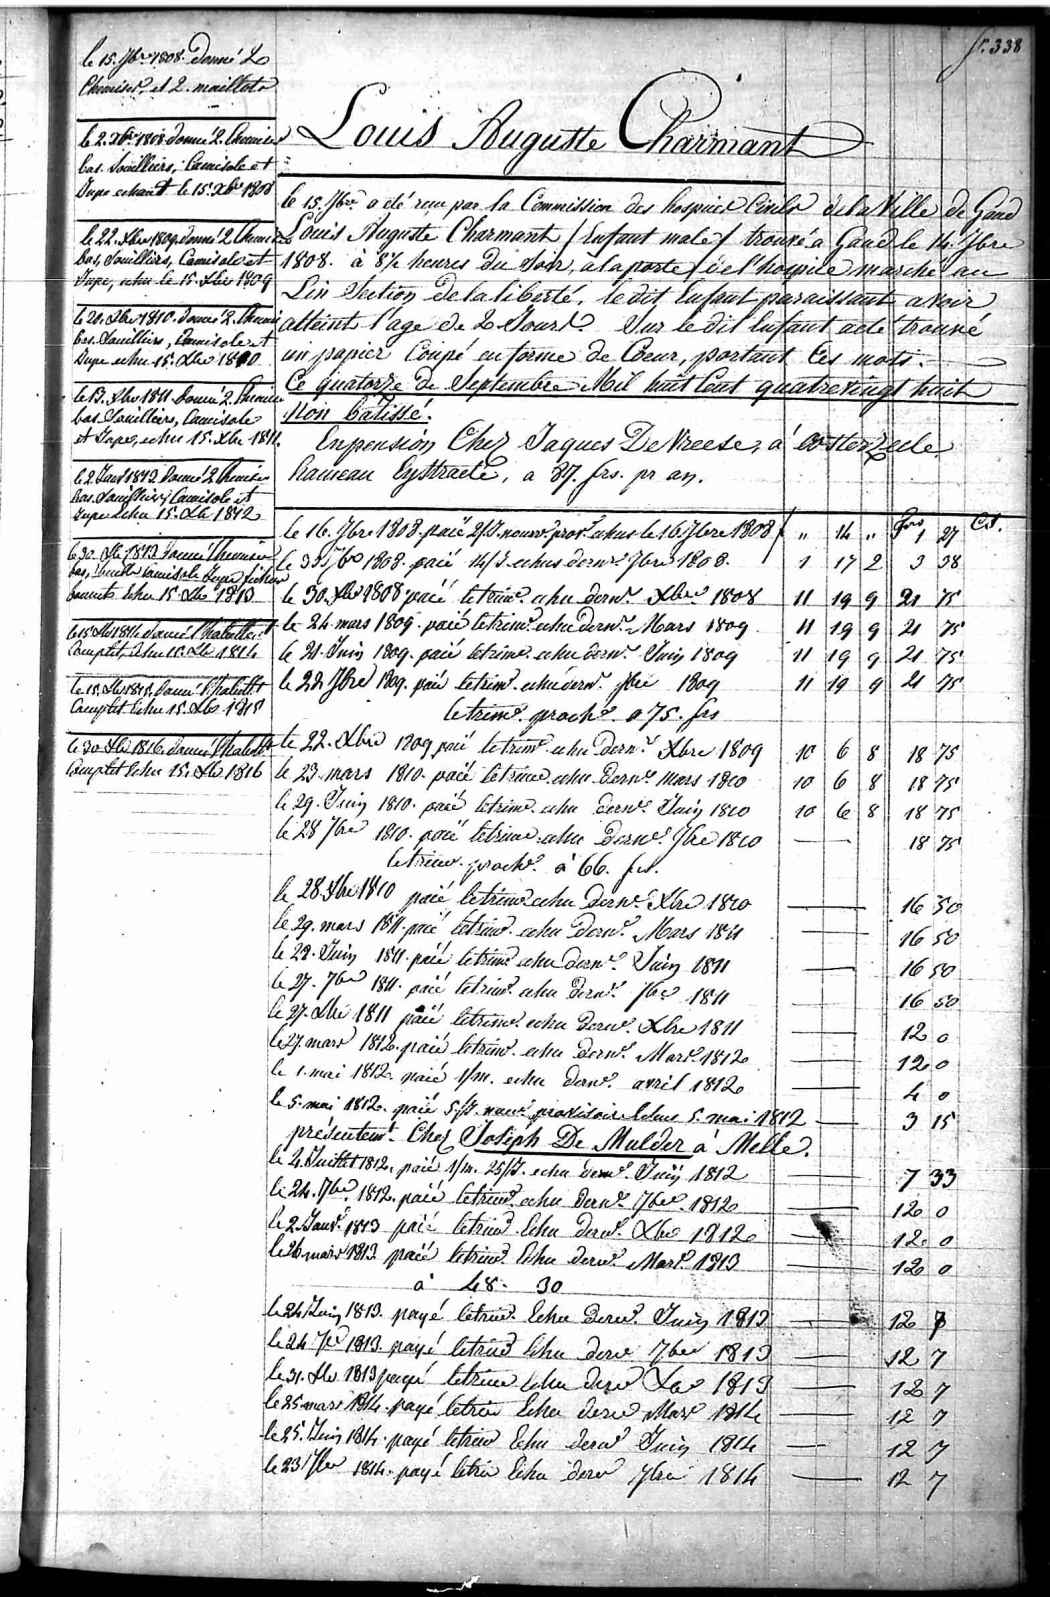 f. 338
le 15. 7bre 1808. donné 2
Chemises, et 2. maillots
le 2. Xbre 1808 donné 2. Chemises
bas. Souilliers, Camisole et
Jupe echeant le 15. Xbre 1808
le 22. Xbre 1809 donné 2 Chemises
bas, Souilliers, Camisole et
Jupe, echu le 15. Xbre 1809
le 21. Xbre 1810. donné 2. Chemis
bas. Souilliers, Camisole et
Jupe echu 15. Xbre 1810
le 13. Xbre 1811 donné 2. Chemise
bas. Souilliers, Camisole
et Jupe, echu 15. Xbre 1811.
le 2 Janv 1812 donné 2 Chemises
bas. Souilliers, Camisole et
Jupe Echu 15. Xbre 1812
le 30. Xbre 1813 donné Chemise
bas, Camisole Jupe fichu
bonnets Echu 15. Xbre 1813
le 15 Xbre 1814 donné l'habillt
Complet, Echu 15. Xbre 1814
le 15. Xbre 1815. donné l'habillt
Complet Echu 15. Xbre 1815
le 30 Xbre 1816. donné l'habillt
Complet Echu 15. Xbre 1816
Louis Auguste Charmant
le 15. 7bre a été reçu par la Commission des hospices Civils de la Ville de Gand
Louis Auguste Charmant / Enfant male / trouvé a Gand le 14. 7bre
1808. à 8½ heures du Soir, a la porte de l'hospice marché au
Lin Section de la liberté, le dit Enfant paraissant avoir
atteint l'age de 2 Jours. Sur le dit Enfant a été trouvé
un papier Coupé en forme de Coeur, portant ces mots.
Ce quatorze de Septembre Mil huit Cent quatrevingt huit
Non batissé.
En pension Chez Jaques De Vreese, à Oosterzeele.
hameau Eysttracte, a 87. frs. pr an.
frs Cs.
le 16. 7bre 1808. paié 2/J. nourr. prov. echus le 16 7bre 1808 " 14 " 1 27
le 30 7bre 1808. paié 14/J. echus dernr. 7bre 1808. 1 17 2 3 38
le 30. Xbre 1808 paié le trimr. echu dernr. Xbre 1808 11 19 9 21 75
le 24 mars 1809. paié le trimr. echu dernr. Mars 1809 11 19 9 21 75
le 21. Juin 1809. paié le trimr. echu dernr. Juin 1809 11 19 9 21 75
le 22 7bre 1809. paié le trimr. echu dernr. 7bre 1809 11 19 9 21 75
le trimr. prochr. a 75. frs
le 22. Xbre 1809 paié le trimr. echu dernr. Xbre 1809 10 6 8 18 75
le 23 mars 1810. paié le trimr. echu dernr. mars 1810 10 6 8 18 75
le 29. Juin 1810. paié le trimr. echu dernr. Juin 1810 10 6 8 18 75
le 28 7bre 1810. paié le trimr. echu dernr. 7bre 1810 — 18 75
le trimr. prochr. à 66. frs.
le 28 Xbre 1810 paié le trimr. echu dernr. Xbre 1810 — 16 50
le 29. mars 1811. paié le trimr. echu dernr. Mars 1811 — 16 50
le 22. Juin 1811. paié le trimr. echu dernr. Juin 1811 — 16 50
le 27. 7bre 1811. paié le trimr. echu dernr. 7bre 1811 — 16 50
le 27. Xbre 1811 paié le trimr. echu dernr. Xbre 1811 — 12 0
le 27 mars 1812. paié le trimr. echu dernr. Mars. 1812 — 12 0
le 1. mai 1812. paié 1/m. echu dernr. avril 1812 — 4 0
le 5. mai 1812. paié 5/J. nourr. provisoire Echus 5. mai 1812 — 3 15
présentemt. Chez Joseph De Mulder à Melle.
le 4. Juillet 1812. paié 1/m. 25/J. echu dernr. Juin 1812 — 7 33
le 24. 7bre 1812. paié le trimr. echu dernr. 7bre 1812 — 12 0
le 2 Janvr. 1813 paié le trimr. Echu dernr. Xbre 1812 — 12 0
le 26 mars 1813 paié le trimr. Echu dernr. Mars. 1813 — 12 0
à 48 - 30
le 24 Juin 1813. payé le trimr. Echu dernr. Juin 1813 — 12 7
le 24 7bre 1813. payé le trimr Echu dernr 7bre 1813 — 12 7
le 31. Xbre 1813 payé le trimr echu dernr Xbre 1813 — 12 7
le 25 mars 1814. payé le trimr Echu dernr Mars 1814 — 12 7
le 25. Juin 1814. payé le trimr Echu dernr Juin 1814 — 12 7
le 23 7bre 1814. payé le trimr Echu dernr 7bre 1814 — 12 7